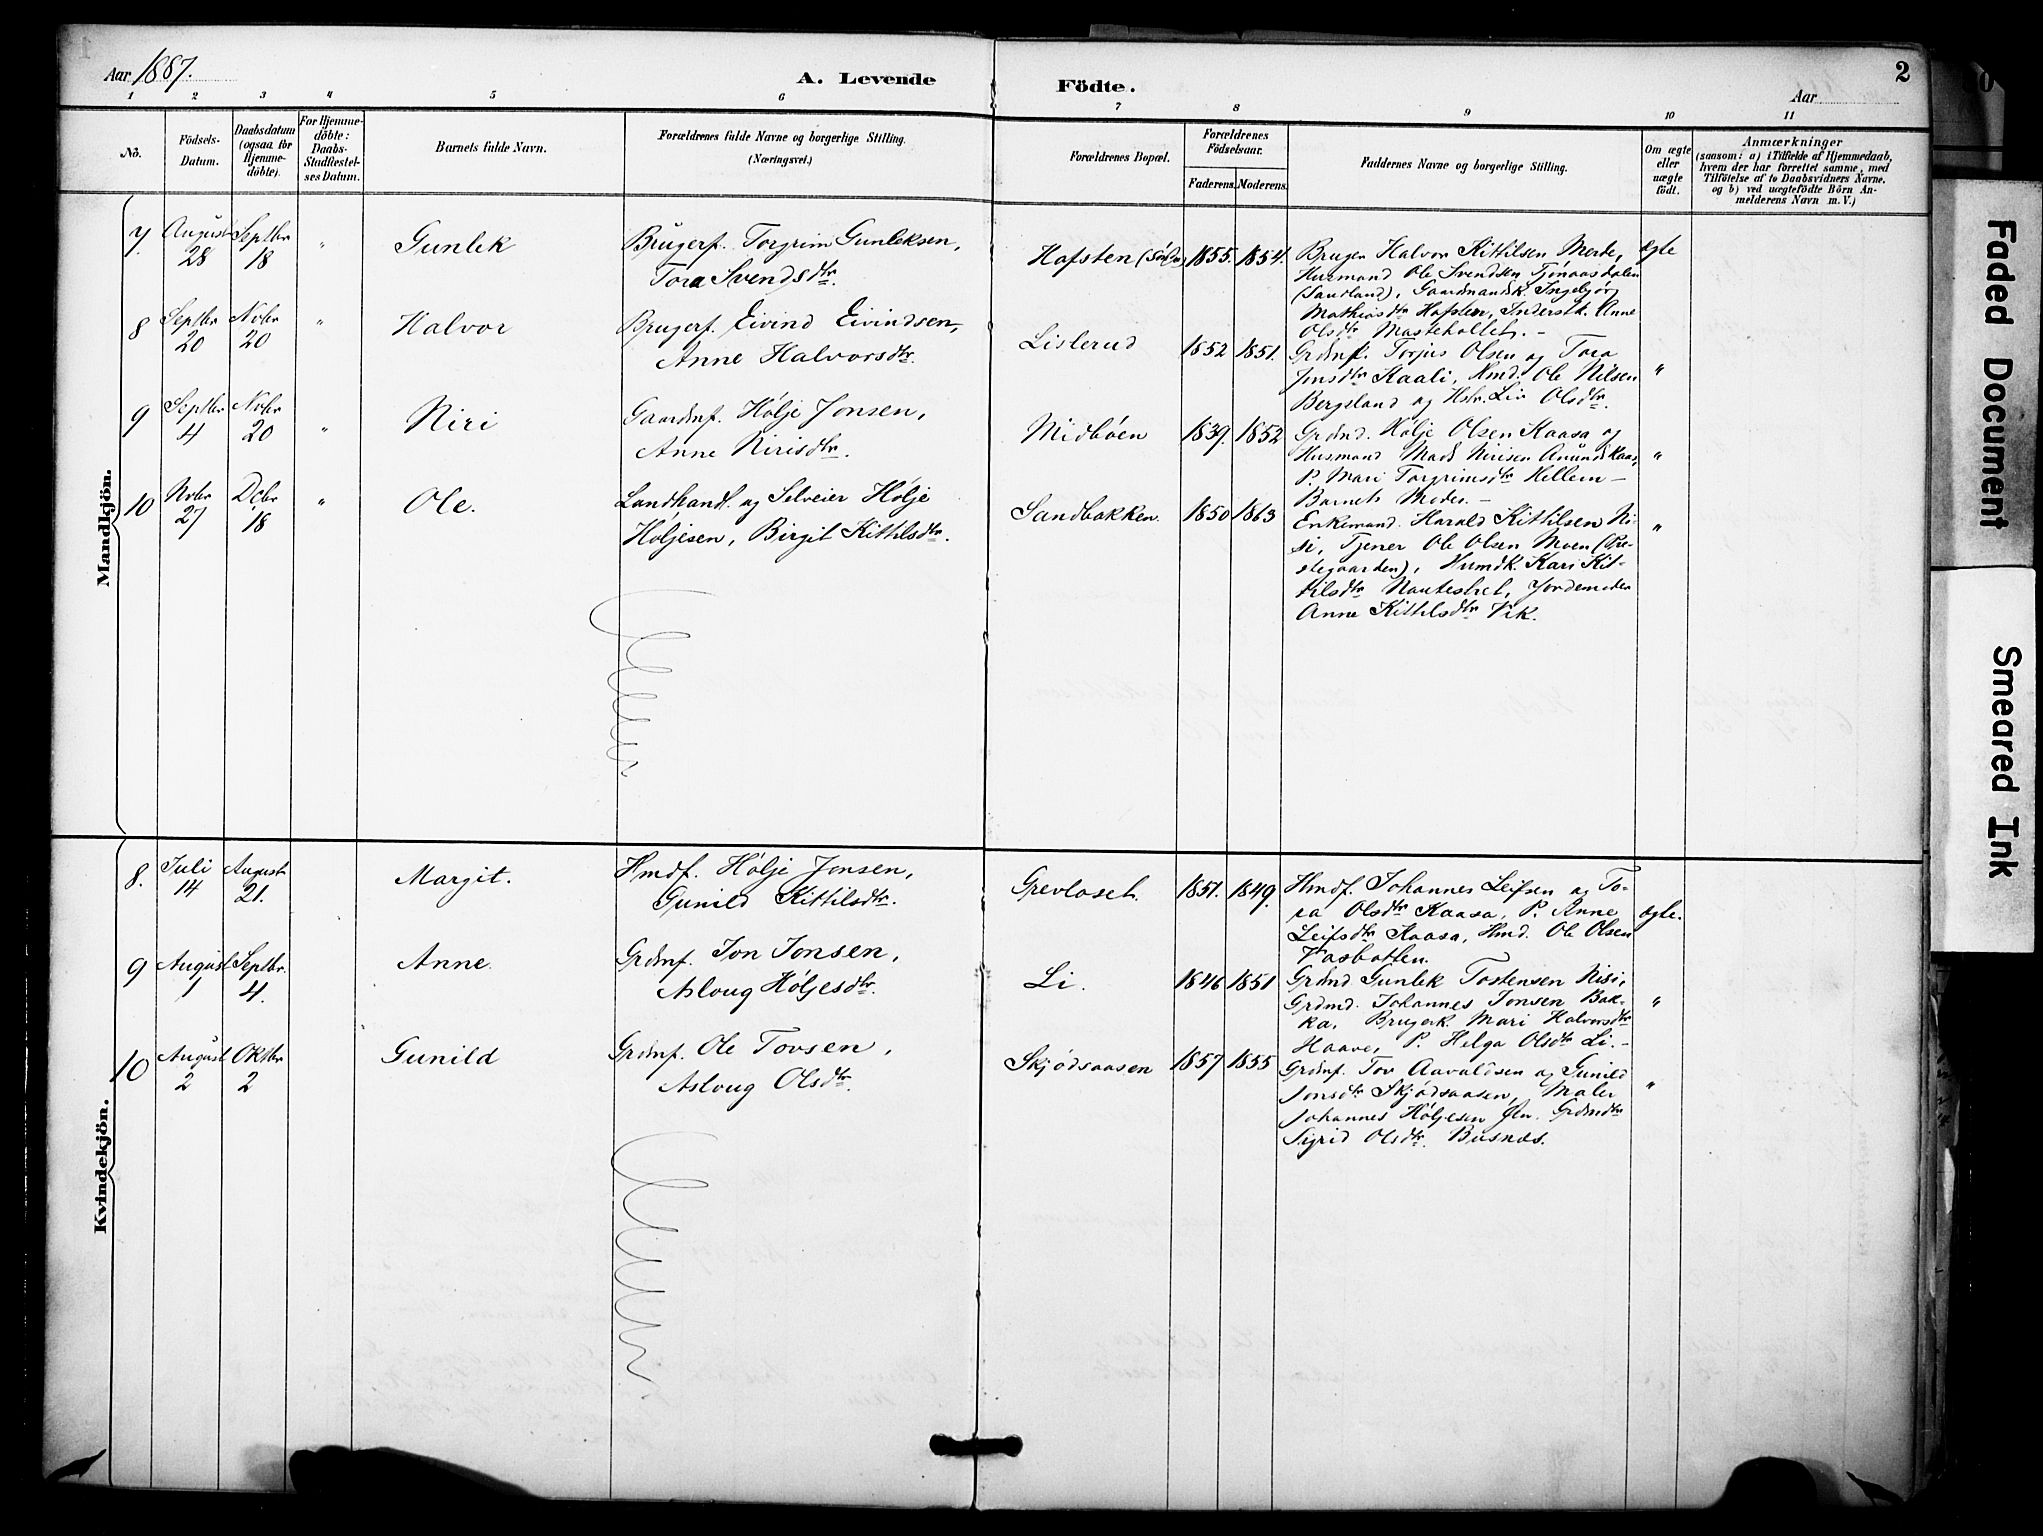 Aar 1887.
A. Levende Födte.
2
Aar
1 2 3 4 5 6 7 8 9 10 11
No.
Födsels-
Datum.
Daabsdatum
(ogsaa for
Hjemme-
döbte).
For Hjemme-
döbte:
Daabs-
Stadfæstel-
ses Datum.
Barnets fulde Navn.
Forældrenes fulde Navne og borgerlige Stilling.
(Næringsvei.)
Forældrenes Bopæl.
Forældrenes
Födselsaar.
Faderens. Moderens.
Faddernes Navne og borgerlige Stilling.
Om ægte
eller
uægte
födt.
Anmærkninger
(saasom: a) i Tilfælde af Hjemmedaab,
hvem der har forrettet samme, med
Tilföielse af to Daabsvidners Navne.
og b) ved uægtefödte Börn An-
melderens Navn m. V.)
Mandkjön.
7. August 28 Septbr 18 " Gunlek
Brugerf. Torgrim Gunleksen,
Tora Svendsdtr.
Hafsten 1855. 1854.
Bruger Halvor Kittilsen Merde,
Husmand Ole Svendsen Tjönaasdalen
(Sauland), Gaardmandsk. Ingebjör
Mathiasdtr Hafsten, Inderstk. Anne
Olsdtr Masteholtet. -
ægte
8 Septbr 20 Novbr 20 " Halvor
Brugerf. Eivind Eivindsen,
Anne Halvorsdtr.
Lislerud 1852 1851.
Grdmf. Torjus Olsen og Tora
Jonsdtr Kaali, Hmd. Ole Nilsen
Bergsland og Hstr. Liv Olsdtr.
"
9 Septbr 4 Novbr 20 " Niri
Gaardmf. Hölje Jonsen,
Anne Nirisdtr.
Midböen 1839. 1852
Grdmd. Hölje Olsen Kaasa og
Husmand Mads Nirisen
P. Mari Torgrimsdtr Hellem -
Barnets Moder. -
"
10 Novbr 27 Dcbr 18 " Ole.
Landhandl. og Selveier Hölje
Holjesen, Birgit Kittilsdtr.
Sandbakken. 1850 1863
Enkemand Harald Kittilsen Ni-
si, Tjener Ole Olsen Moen (Præ-
stegaarden), Kari Kit-
tilsdtr Jordemoder
Anne Kittilsdtr Vik.
"
Kvindekjön.
8. Juli 14 August 21. Margit.
Hmdf. Hölje Jonsen,
Gunild Kittilsdtr.
Grevlaset. 1851. 1849.
Hmdf. Johannes Leifsen og To-
ra Olsdtr Kaasa, P. Anne
Leifsdtr Kaasa, Hmd. Ole Olsen
Vasbotten.
ægte.
9 August 1 Septbr. 4. Anne.
Grdmf. Jon Jonsen,
Asloug Höljesdtr.
Li. 1846 1851
Grdmd Gunlek Tostensen Nisi,
Grdmd. Johannes Jonsen Bak-
ka, Brugerk. Mari Halvorsdtr
Haave, P. Helga Olsdtr Li. -
"
10 August 2 Oktbr 2 Gunild
Grdmf. Ole Tovsen,
Asloug Olsdtr.
Skjödsaasen 1857 1855
Grdmf. Tov Aavaldsen og Gunild
Jonsdtr Skjödsaasen, Maler
Johannes Höljesen Grdmdtr
Sigrid Olsdtr. Busnæs.
"
Faded Document
Smeared Ink